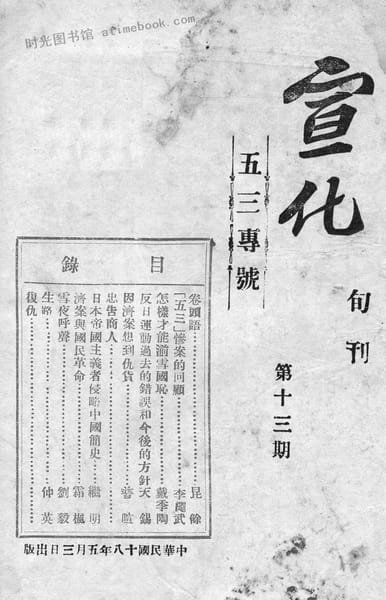 时光图书馆 atimebook.com
宣化
旬刊
第十三期
五三專號
目錄
卷頭語 昆餘
「五三」慘案的回顧 李隠武
怎樣才能湔雪國恥 戴季陶
反日運動過去的錯誤和今後的方針 天錫
因濟案想到仇貨
忠告商人
日本帝國主義者侵略中國簡史 繼明
濟案與國民革命 霜楓
雪夜呼聲 劉毅
生路 仲英
復仇
中華民國十八年五月三日出版